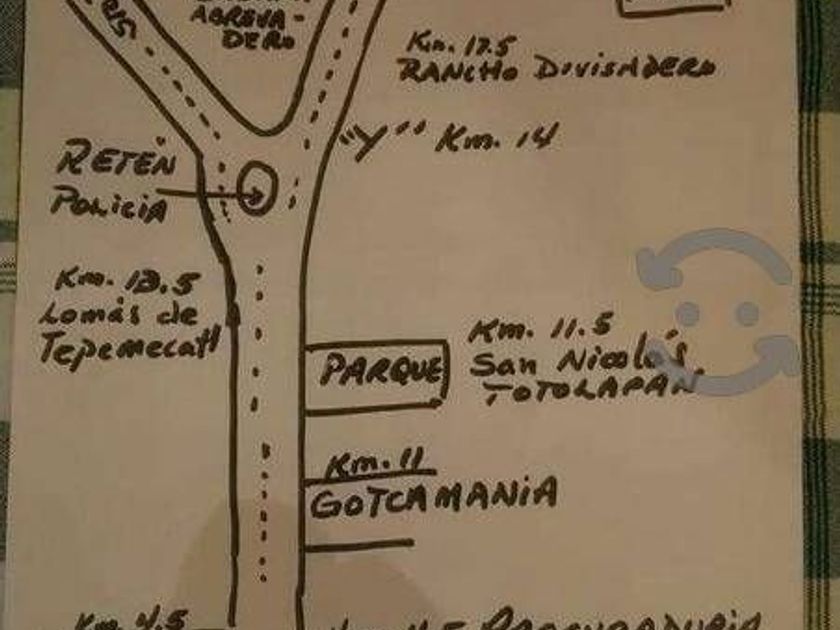 ABREVA-
DERO
Km. 17.5
RANCHO DIVISADERO
"Y" Km. 14
RETEN
POLICIA
Km. 13.5
Lomas de
Tepemecatl
Km. 11.5
San Nicolás
TOTOLAPAN
PARQUE
Km. 11
GOTCAMANIA
Km. 4.5